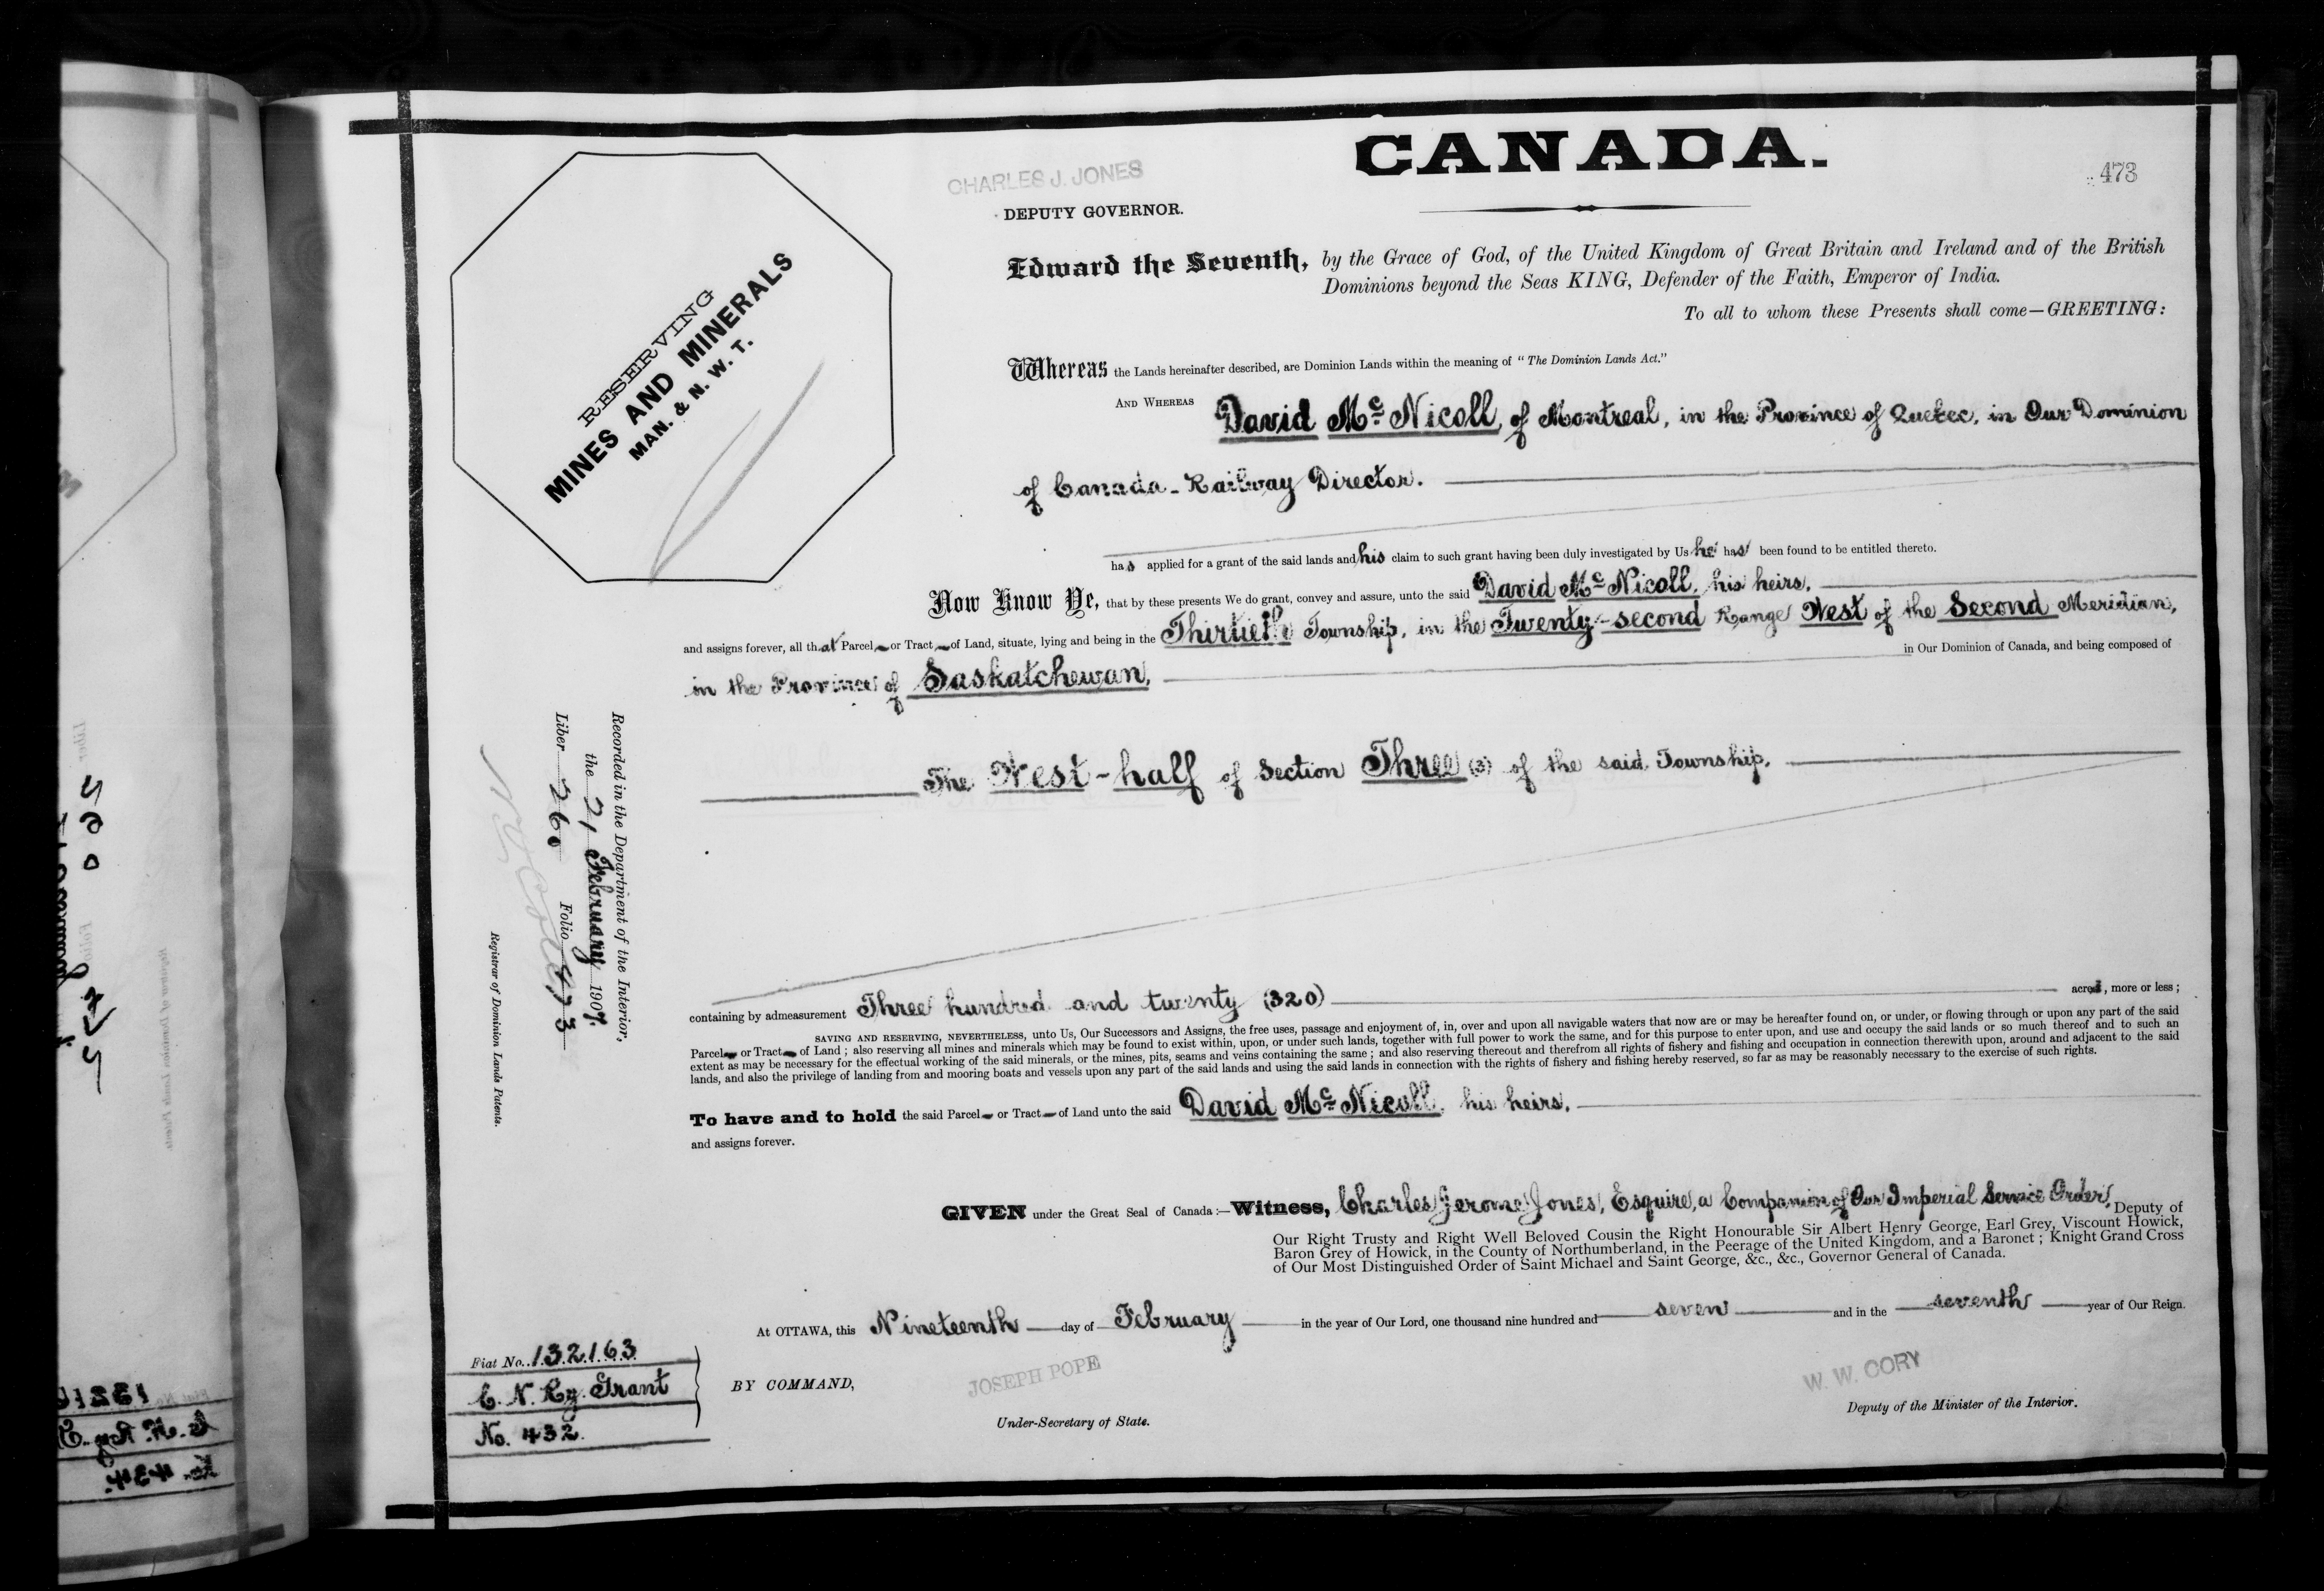 CANADA.
473
CHARLES J. JONES
DEPUTY GOVERNOR.
RESERVING
MINES AND MINERALS
MAN. & N. W. T.
Edward the Seventh, by the Grace of God, of the United Kingdom of Great Britain and Ireland and of the British
Dominions beyond the Seas KING, Defender of the Faith, Emperor of India.
To all to whom these Presents shall come—GREETING:
Whereas the Lands hereinafter described, are Dominion Lands within the meaning of "The Dominion Lands Act."
AND WHEREAS David McNicoll, of Montreal, in the Province of Quebec, in Our Dominion
of Canada - Railway Director.
has applied for a grant of the said lands and his claim to such grant having been duly investigated by Us he has been found to be entitled thereto.
Now Know Ye, that by these presents We do grant, convey and assure, unto the said David McNicoll, his heirs,
and assigns forever, all that Parcel or Tract of Land, situate, lying and being in the Thirtieth Township, in the Twenty-second Range West of the Second Meridian,
in the Province of Saskatchewan, in Our Dominion of Canada, and being composed of
The West-half of Section Three (3) of the said Township.
containing by admeasurement Three hundred and twenty (320) acres, more or less;
SAVING AND RESERVING, NEVERTHELESS, unto Us, Our Successors and Assigns, the free uses, passage and enjoyment of, in, over and upon all navigable waters that now are or may be hereafter found on, or under, or flowing through or upon any part of the said
Parcel or Tract of Land; also reserving all mines and minerals which may be found to exist within, upon, or under such lands, together with full power to work the same, and for this purpose to enter upon, and use and occupy the said lands or so much thereof and to such an
extent as may be necessary for the effectual working of the said minerals, or the mines, pits, seams and veins containing the same; and also reserving thereout and therefrom all rights of fishery and fishing and occupation in connection therewith upon, around and adjacent to the said
lands, and also the privilege of landing from and mooring boats and vessels upon any part of the said lands and using the said lands in connection with the rights of fishery and fishing hereby reserved, so far as may be reasonably necessary to the exercise of such rights.
To have and to hold the said Parcel or Tract of Land unto the said David McNicoll, his heirs,
and assigns forever.
GIVEN under the Great Seal of Canada:—Witness, Charles Jerome Jones, Esquire, a Companion of Our Imperial Service Order, Deputy of
Our Right Trusty and Right Well Beloved Cousin the Right Honourable Sir Albert Henry George, Earl Grey, Viscount Howick,
Baron Grey of Howick, in the County of Northumberland, in the Peerage of the United Kingdom, and a Baronet; Knight Grand Cross
of Our Most Distinguished Order of Saint Michael and Saint George, &c., &c., Governor General of Canada.
At OTTAWA, this Nineteenth day of February in the year of Our Lord, one thousand nine hundred and seven and in the seventh year of Our Reign.
BY COMMAND,
JOSEPH POPE
Under-Secretary of State.
W. W. CORY
Deputy of the Minister of the Interior.
Fiat No. 132163
C. N. Ry. Grant
No. 432.
Recorded in the Department of the Interior,
the 21 February 1907.
Liber 260 Folio 473
Registrar of Dominion Lands Patents.